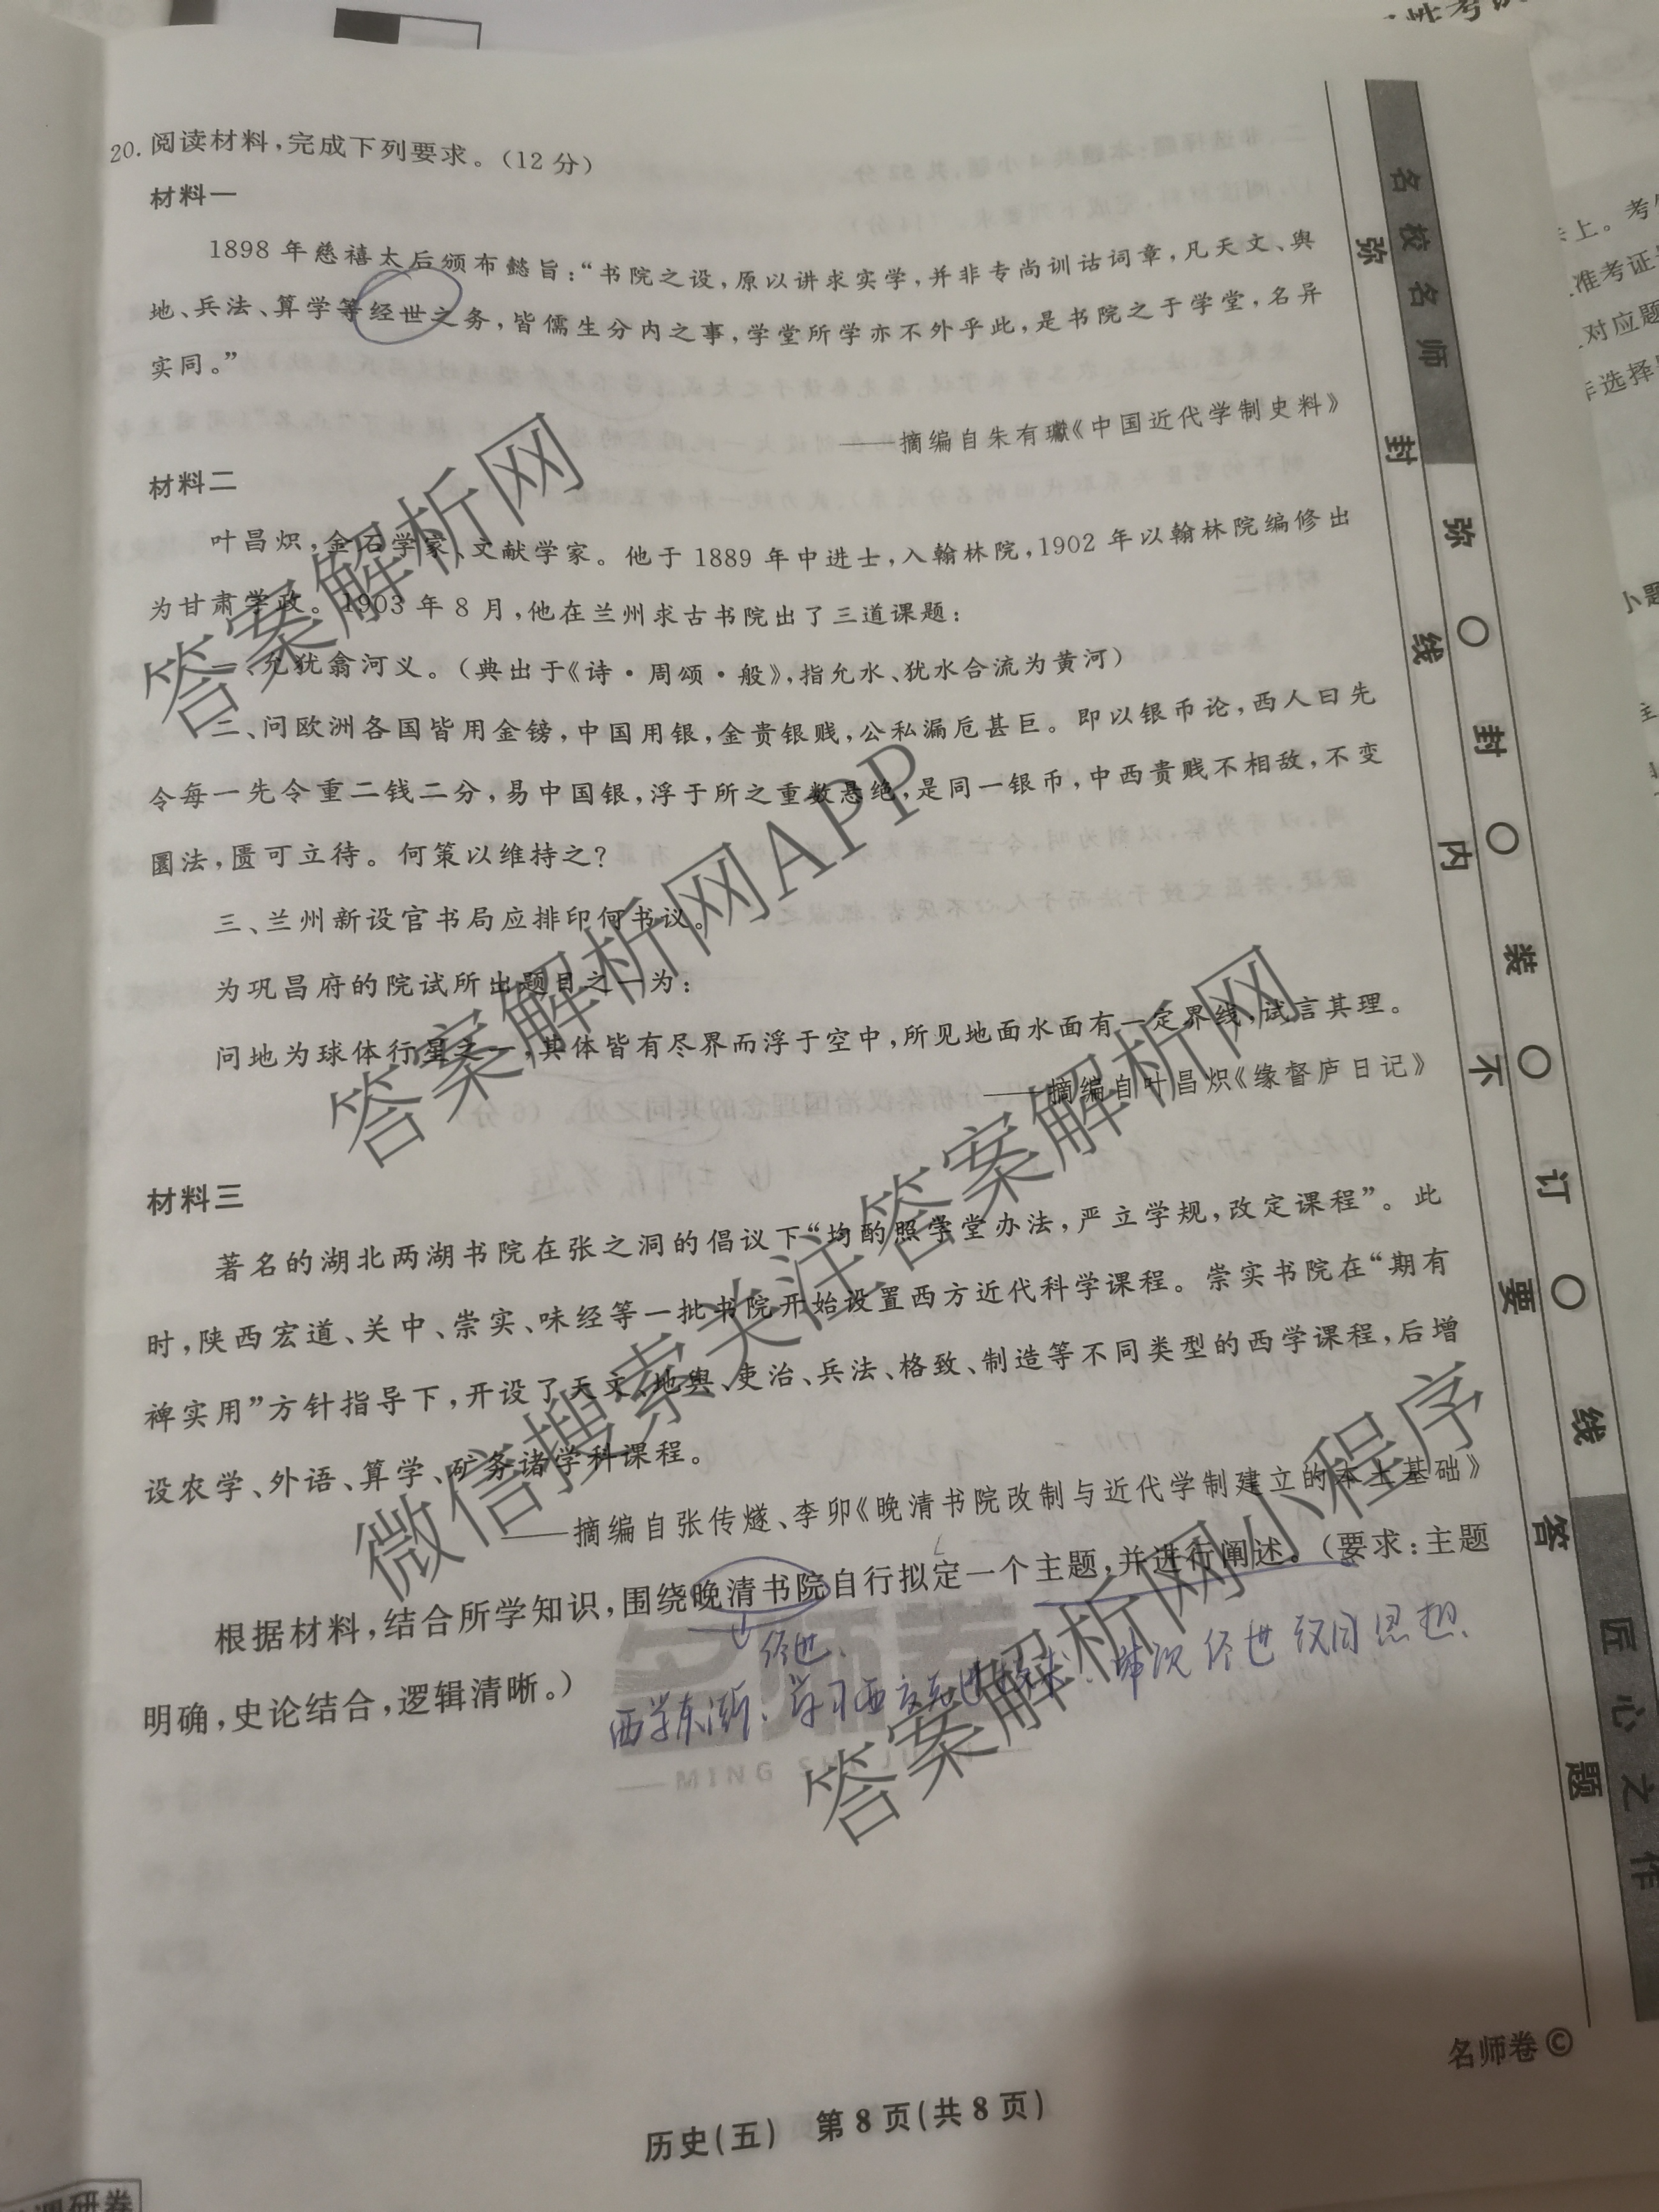 20. 阅读材料,完成下列要求。(12 分)
材料一
1898 年慈禧太后颁布懿旨:“书院之设,原以讲求实学,并非专尚训诂词章,凡天文、舆
地、兵法、算学等经世之务,皆儒生分内之事,学堂所学亦不外乎此,是书院之于学堂,名异
实同。”
——摘编自朱有瓛《中国近代学制史料》
材料二
叶昌炽,金石学家、文献学家。他于 1889 年中进士,入翰林院,1902 年以翰林院编修出
为甘肃学政。1903 年 8 月,他在兰州求古书院出了三道课题:
一、允犹翕河义。(典出于《诗·周颂·般》,指允水、犹水合流为黄河)
二、问欧洲各国皆用金镑,中国用银,金贵银贱,公私漏卮甚巨。即以银币论,西人曰先
令每一先令重二钱二分,易中国银,浮于所之重数悬绝,是同一银币,中西贵贱不相敌,不变
圜法,匮可立待。何策以维持之?
三、兰州新设官书局应排印何书议。
为巩昌府的院试所出题目之一为:
问地为球体行星之一,其体皆有尽界而浮于空中,所见地面水面有一定界线,试言其理。
——摘编自叶昌炽《缘督庐日记》
材料三
著名的湖北两湖书院在张之洞的倡议下“均酌照学堂办法,严立学规,改定课程”。此
时,陕西宏道、关中、崇实、味经等一批书院开始设置西方近代科学课程。崇实书院在“期有
裨实用”方针指导下,开设了天文、地舆、吏治、兵法、格致、制造等不同类型的西学课程,后增
设农学、外语、算学、矿务诸学科课程。
——摘编自张传燧、李卯《晚清书院改制与近代学制建立的本土基础》
根据材料,结合所学知识,围绕晚清书院自行拟定一个主题,并进行阐述。(要求:主题
明确,史论结合,逻辑清晰。)
经世、
西学东渐、学习西方先进技术、体现经世致用思想、
名师卷
历史(五) 第 8 页(共 8 页)
名师卷©
名校名师
匠心之作
弥封线内不要答题
弥〇封〇装〇订〇线
调研卷
答案解析网
答案解析网APP
微信搜索关注答案解析网
答案解析网小程序